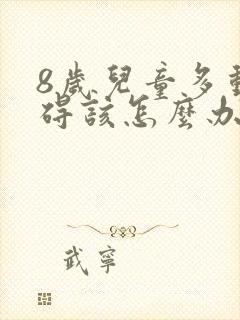 8歲兒童多動
碍該怎麼办
武寧